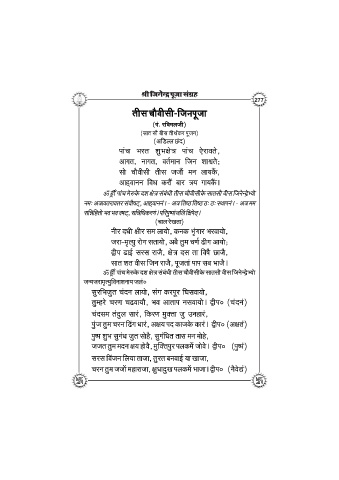 श्री जिनेन्द्र पूजा संग्रह
277
तीस चौबीसी-जिनपूजा
(पं. रविमलजी)
(सात सौ बीस तीर्थंकर पूजन)
(अडिल्ल छंद)
पांच भरत शुभक्षेत्र पांच ऐरावते,
आगत, नागत, वर्तमान जिन शाश्वते;
सो चौवीसी तीस जजौं मन लायकैं,
आह्वानन विध करौं बार त्रय गायकैं।
ॐ ह्रीँ पांच मेरुके दश क्षेत्र संबंधी तीस चौबीसीके सातसौ वीस जिनेन्द्रेभ्यो
नमः अत्रावतरावतर संवौषट्, आह्वाननं। - अत्र तिष्ठ तिष्ठ ठः ठः स्थापनं। - अत्र मम
सन्निहितो भव भव वषट्, सन्निधिकरणं। परिपुष्पांजलिं क्षिपेत्।
(चाल रेखता)
नीर दधी क्षीर सम लायो, कनक भृंगार भरवायो,
जरा-मृत्यु रोग सतायो, अबै तुम चर्ण ढीग आयो;
द्वीप ढाई सरस राजै, क्षेत्र दस ता विषै छाजै,
सात शत वीस जिन राजै, पूजतां पाप सब भाजै।
ॐ ह्रीँ पांच मेरुके दश क्षेत्र संबंधी तीस चौबीसीके सातसौ वीस जिनेन्द्रेभ्यो
जन्मजरामृत्युविनाशनाय जलं०
सुरभिजुत चंदन लायो, संग करपुर घिसवायो,
तुम्हरे चरण चढवायौ, भव आताप नसवायो। द्वीप० (चंदनं)
चंदसम तंदुल सारं, किरण मुक्ता जु उनहारं,
पुंज तुम चरन ढिग धारं, अक्षय पद काजके कारं। द्वीप० (अक्षतं)
पुष्प शुभ सुगंध जुत सोहै, सुगंधित तास मन मोहे,
जजत तुम मदन क्षय होवै, मुक्तिपुर पलकमें जोवे। द्वीप० (पुष्पं)
सरस विंजन लिया ताजा, तुरत बनवाई या खाजा,
चरन तुम जजों महाराजा, क्षुधादुख पलकमें भाजा। द्वीप० (नैवेद्यं)